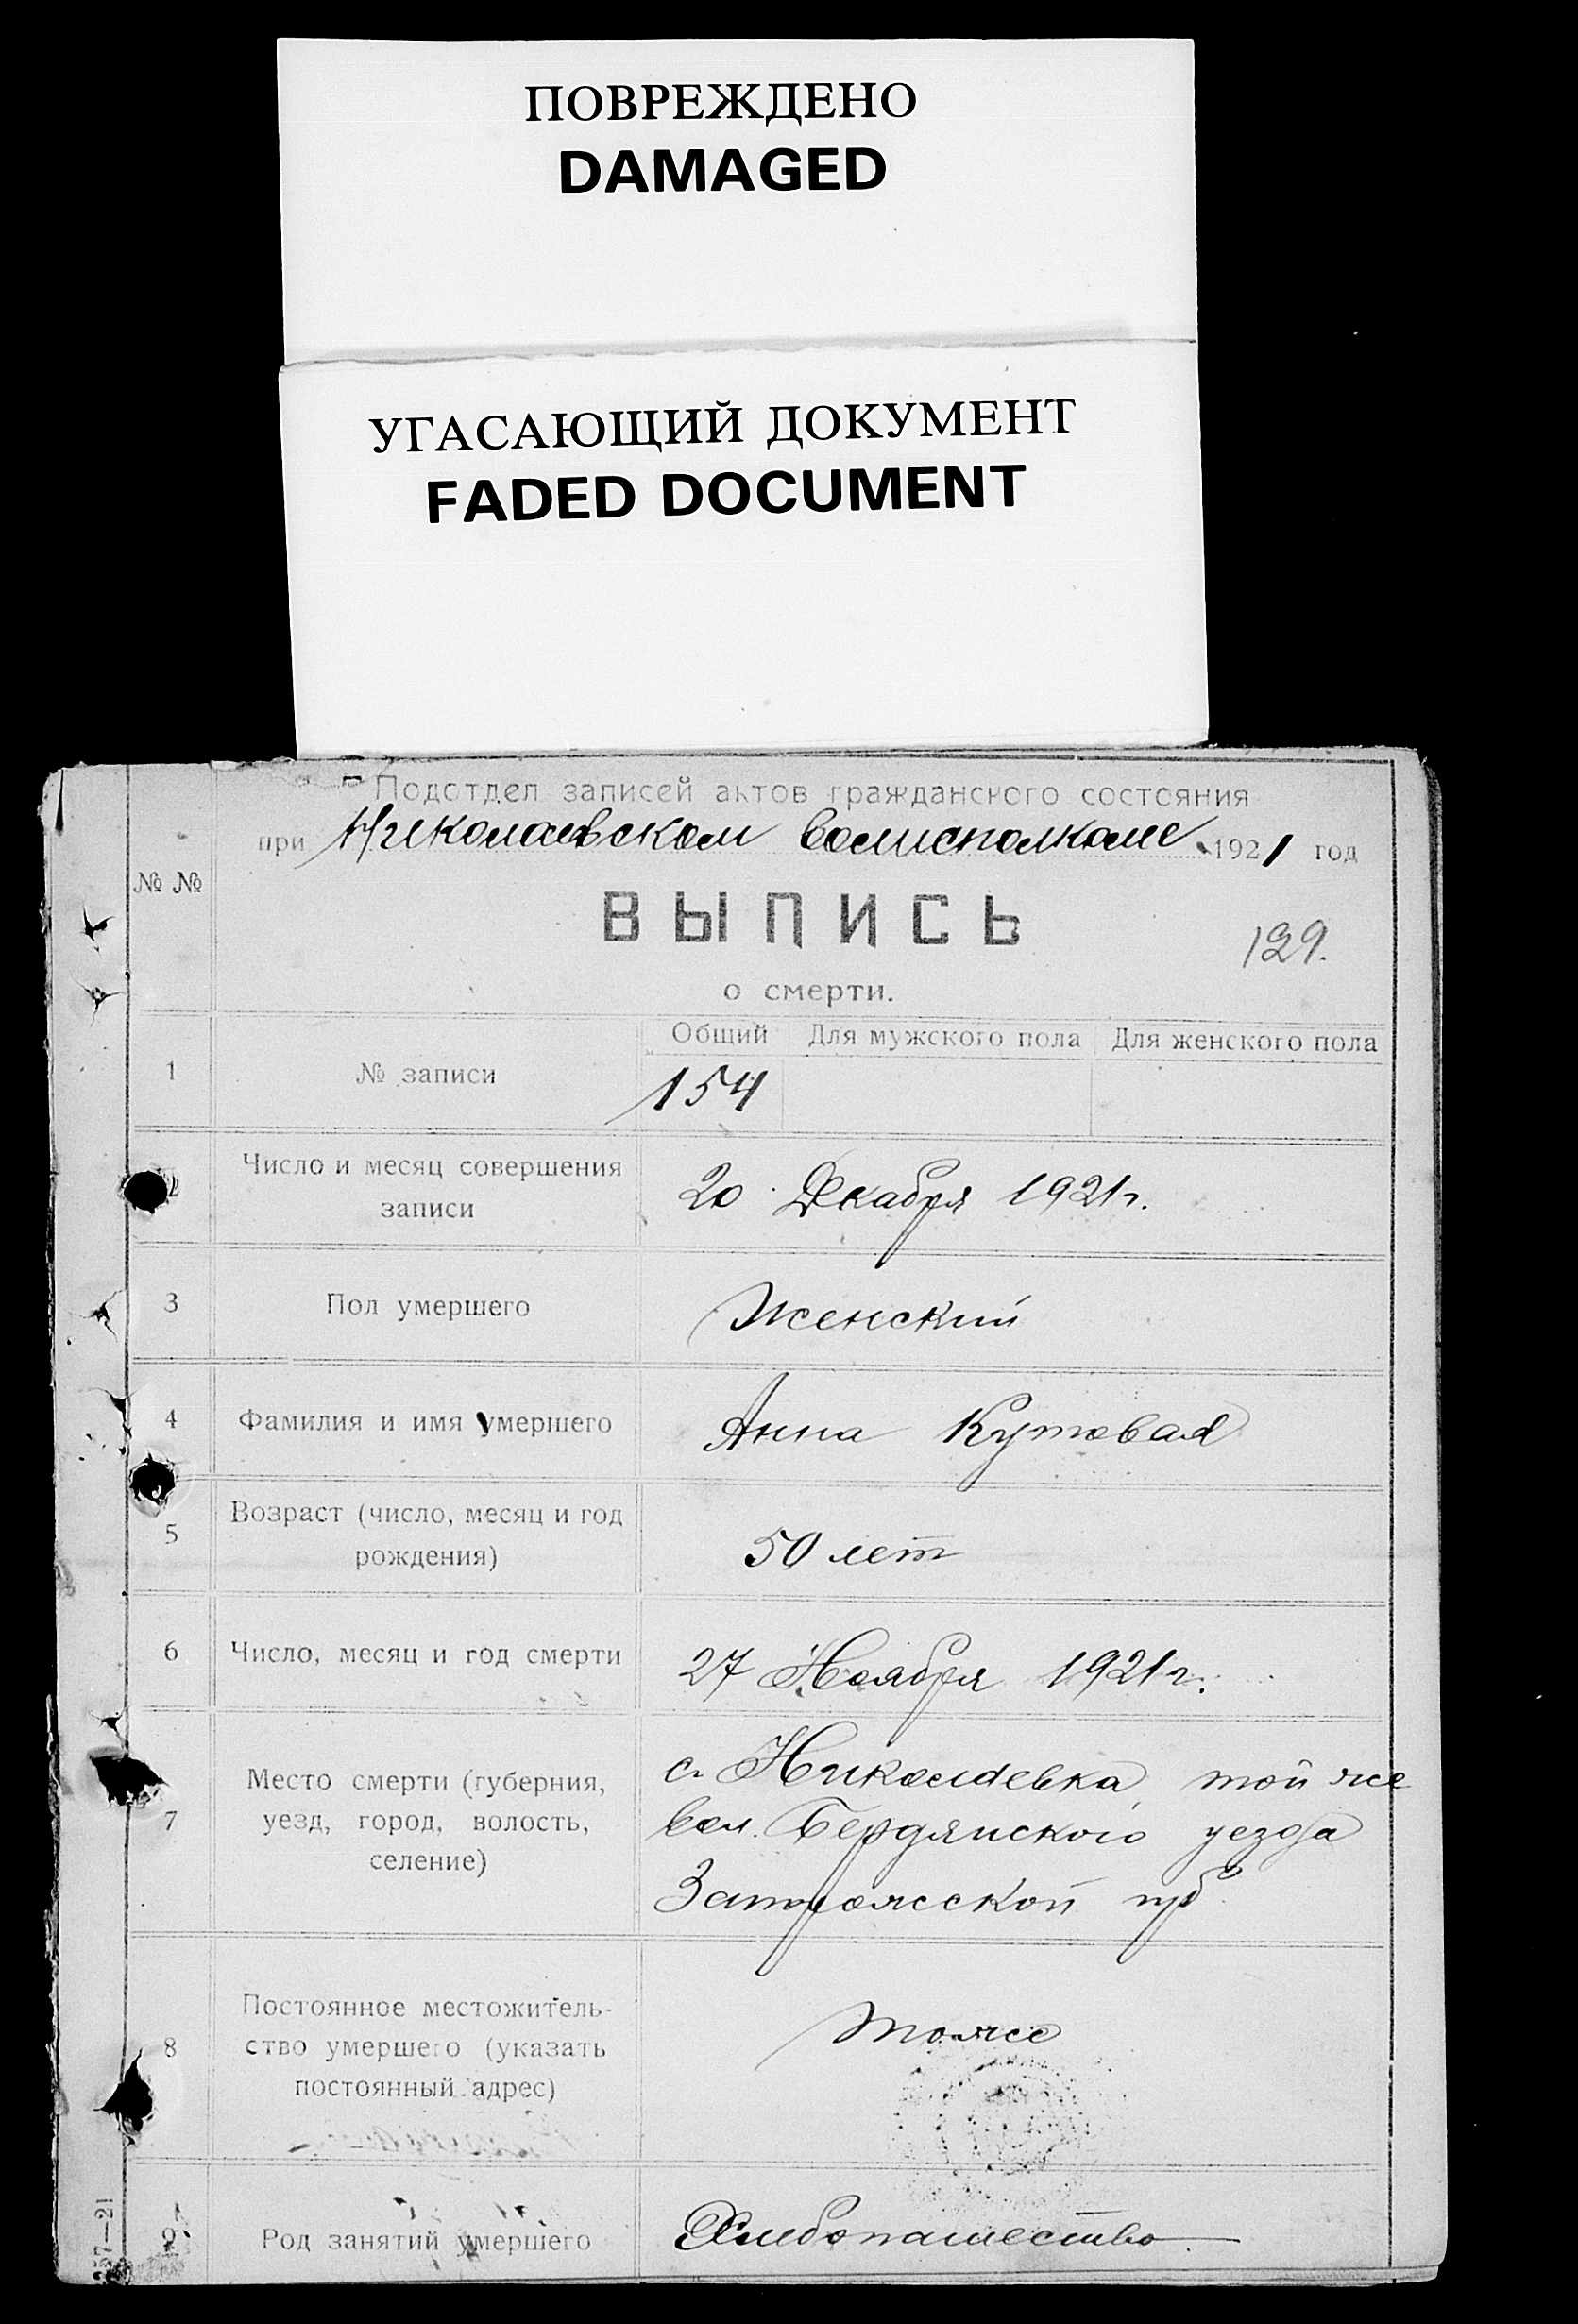 ПОВРЕЖДЕНО
DAMAGED
УГАСАЮЩИЙ ДОКУМЕНТ
FADED DOCUMENT
Подотдел записей актов гражданского состояния
при Николаевском волисполкоме 1921 год
№ №
ВЫПИСЬ
129.
о смерти.
Общий Для мужского пола Для женского пола
1 № записи 154
2 Число и месяц совершения
записи
20 Декабря 1921 г.
3 Пол умершего Женский
4 Фамилия и имя умершего Анна Кутовая
5 Возраст (число, месяц и год
рождения)
50 лет
6 Число, месяц и год смерти 27 Ноября 1921 г.
7 Место смерти (губерния,
уезд, город, волость,
селение)
с. Николаевка, той же
вол. Бердянского уезда
Запорожской губ.
8 Постоянное местожитель-
ство умершего (указать
постоянный адрес)
тоже
9 Род занятий умершего Хлебопашество